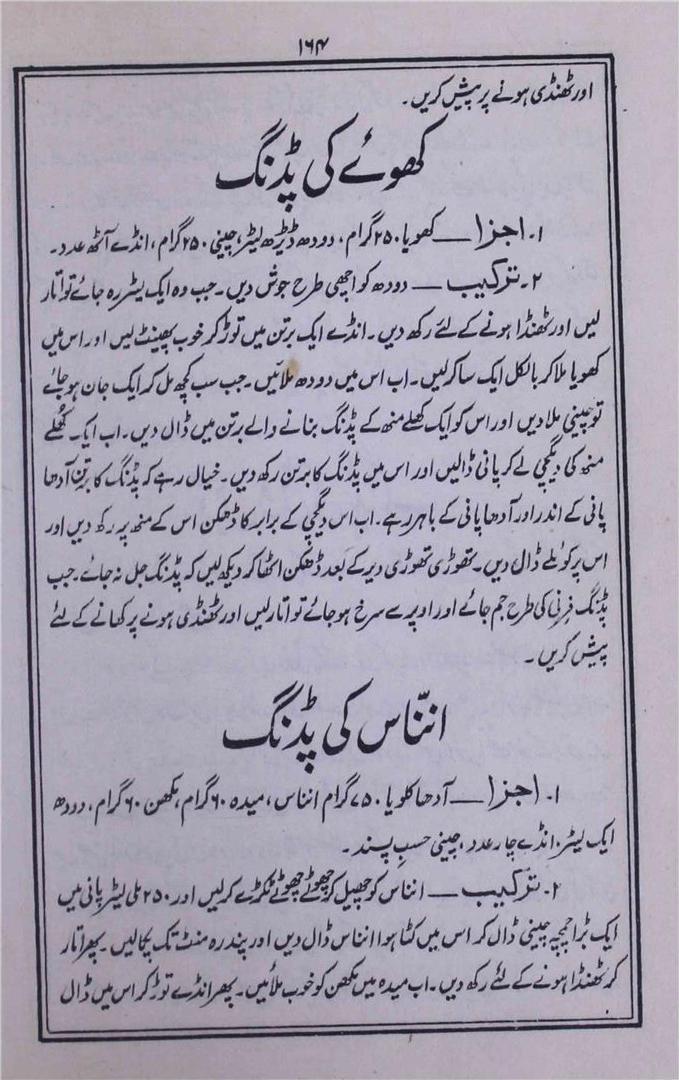 ۱۶۴
اور ٹھنڈی ہونے پر پیش کریں۔
کھوئے کی پڈنگ
۱۔ اجزا ــــ کھویا ۲۵۰ گرام، دودھ ڈیڑھ لیٹر، چینی ۲۵۰ گرام، انڈے آٹھ عدد۔
۲۔ ترکیب ــــ دودھ کو اچھی طرح جوش دیں۔ جب وہ ایک لیٹر رہ جائے تو اتار
لیں اور ٹھنڈا ہونے کے لئے رکھ دیں۔ انڈے ایک برتن میں توڑ کر خوب پھینٹ لیں اور اس میں
کھویا ملا کر بالکل ایک سا کر لیں۔ اب اس میں دودھ ملائیں۔ جب سب کچھ مل کر ایک جان ہو جائے
تو چینی ملا دیں اور اس کو ایک کھلے منھ کے پڈنگ بنانے والے برتن میں ڈال دیں۔ اب ایک کھُلے
منھ کی دیگچی لے کر پانی ڈالیں اور اس میں پڈنگ کا برتن رکھ دیں۔ خیال رہے کہ پڈنگ کا برتن آدھا
پانی کے اندر اور آدھا پانی کے باہر رہے۔ اب اس دیگچی کے برابر کا ڈھکن اس کے منھ پر رکھ دیں اور
اس پر کوئلے ڈال دیں۔ تھوڑی تھوڑی دیر کے بعد ڈھکن اٹھا کر دیکھ لیں کہ پڈنگ جل نہ جائے۔ جب
پڈنگ فرنی کی طرح جم جائے اور اوپر سے سرخ ہو جائے تو اتار لیں اور ٹھنڈی ہونے پر کھانے کے لئے
پیش کریں۔
انناّس کی پڈنگ
۱۔ اجزا ــــ آدھا کلو یا ۷۵۰ گرام انناس، میدہ ۶۰ گرام، مکھن ۶۰ گرام، دودھ
ایک لیٹر، انڈے چار عدد، چینی حسبِ پسند۔
۲۔ ترکیب ــــ انناس کو چھیل کر چھوٹے چھوٹے ٹکڑے کر لیں اور ۲۵۰ ملی لیٹر پانی میں
ایک بڑا چمچہ چینی ڈال کر اس میں کٹا ہوا انناس ڈال دیں اور پندرہ منٹ تک پکالیں۔ پھر اتار
کر ٹھنڈا ہونے کے لئے رکھ دیں۔ اب میدہ میں مکھن کو خوب ملائیں۔ پھر انڈے توڑ کر اس میں ڈال